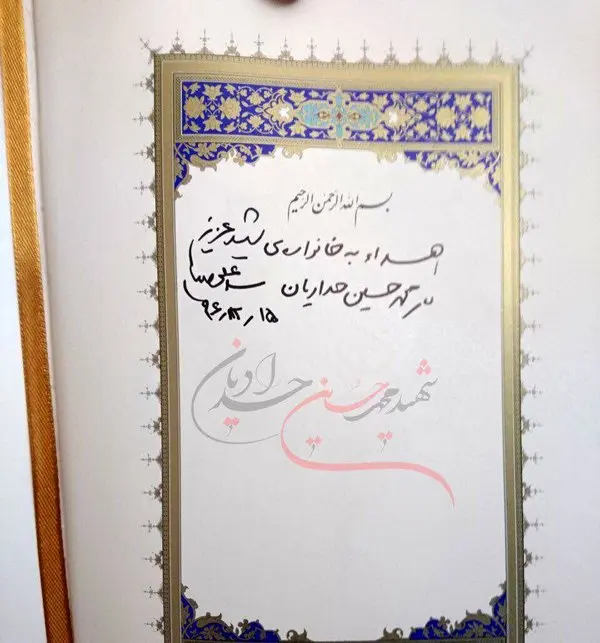 بسم الله الرحمن الرحیم
اهداء به خانواده‌ی شهید عزیز
محمد حسین حدادیان سید علی
شهید محمد حسین حدادیان